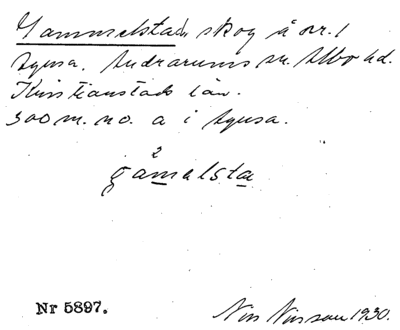 Gammelstads skog å nr. 1
Tyusa. Andrarums sn. Albo hd.
Kristianstads län.
300 m. no. a i Tyusa.
2
gamalsta
Nr 5897.
Nils Nilsson 1930.